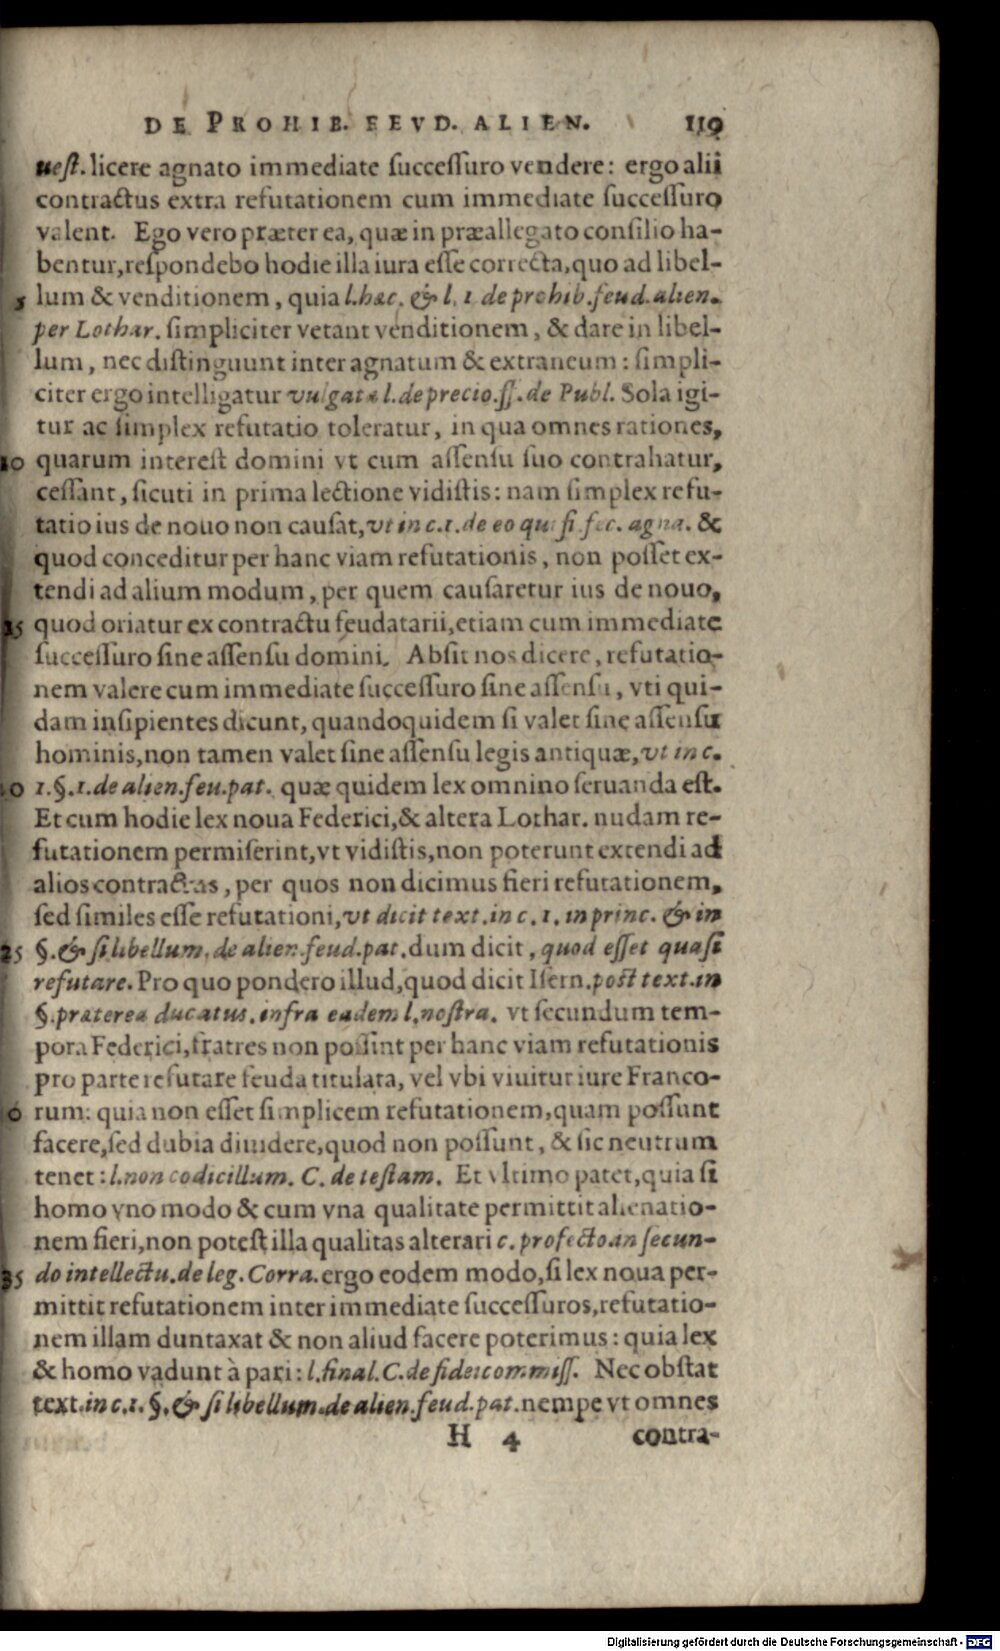 DE PROHIB. FEVD. ALIEN. 119
uest. licere agnato immediate successuro vendere: ergo alii
contractus extra refutationem cum immediate successuro
valent. Ego vero præter ea, quæ in præallegato consilio ha-
bentur, respondebo hodie illa iura esse correcta, quo ad libel-
5 lum & venditionem, quia l. hac. & l. 1. de prohib. feud. alien.
per Lothar. simpliciter vetant venditionem, & dare in libel-
lum, nec distinguunt inter agnatum & extraneum: simpli-
citer ergo intelligatur vulgata l. de precio. ff. de Publ. Sola igi-
tur ac simplex refutatio toleratur, in qua omnes rationes,
10 quarum interest domini vt cum assensu suo contrahatur,
cessant, sicuti in prima lectione vidistis: nam simplex refu-
tatio ius de nouo non causat, vt in c. 1. de eo qui si fec. agna. &
quod conceditur per hanc viam refutationis, non posset ex-
tendi ad alium modum, per quem causaretur ius de nouo,
15 quod oriatur ex contractu feudatarii, etiam cum immediate
successuro sine assensu domini. Absit nos dicere, refutatio-
nem valere cum immediate successuro sine assensu, vti qui-
dam insipientes dicunt, quandoquidem si valet sine assensu
hominis, non tamen valet sine assensu legis antiquæ, vt in c.
20 1. §. 1. de alien. feu. pat. quæ quidem lex omnino seruanda est.
Et cum hodie lex noua Federici, & altera Lothar. nudam re-
futationem permiserint, vt vidistis, non poterunt extendi ad
alios contractus, per quos non dicimus fieri refutationem,
sed similes esse refutationi, vt dicit text. in c. 1. in princ. & in
25 §. & si libellum, de alien. feud. pat. dum dicit, quod esset quasi
refutare. Pro quo pondero illud, quod dicit Isern. post text. in
§. præterea ducatus. infra eadem l. nostra. vt secundum tem-
pora Federici, fratres non possint per hanc viam refutationis
pro parte refutare feuda titulata, vel vbi viuitur iure Franco-
30 rum: quia non esset simplicem refutationem, quam possunt
facere, sed dubia diuidere, quod non possunt, & sic neutrum
tenet: l. non codicillum. C. de testam. Et vltimo patet, quia si
homo vno modo & cum vna qualitate permittit alienatio-
nem fieri, non potest illa qualitas alterari c. profecto. an secun-
35 do intellectu. de leg. Corra. ergo eodem modo, si lex noua per-
mittit refutationem inter immediate successuros, refutatio-
nem illam duntaxat & non aliud facere poterimus: quia lex
& homo vadunt à pari: l. final. C. de fideicommiss. Nec obstat
text. in c. 1. §. & si libellum. de alien. feud. pat. nempe vt omnes
H 4 contra-
Digitalisierung gefördert durch die Deutsche Forschungsgemeinschaft - DFG